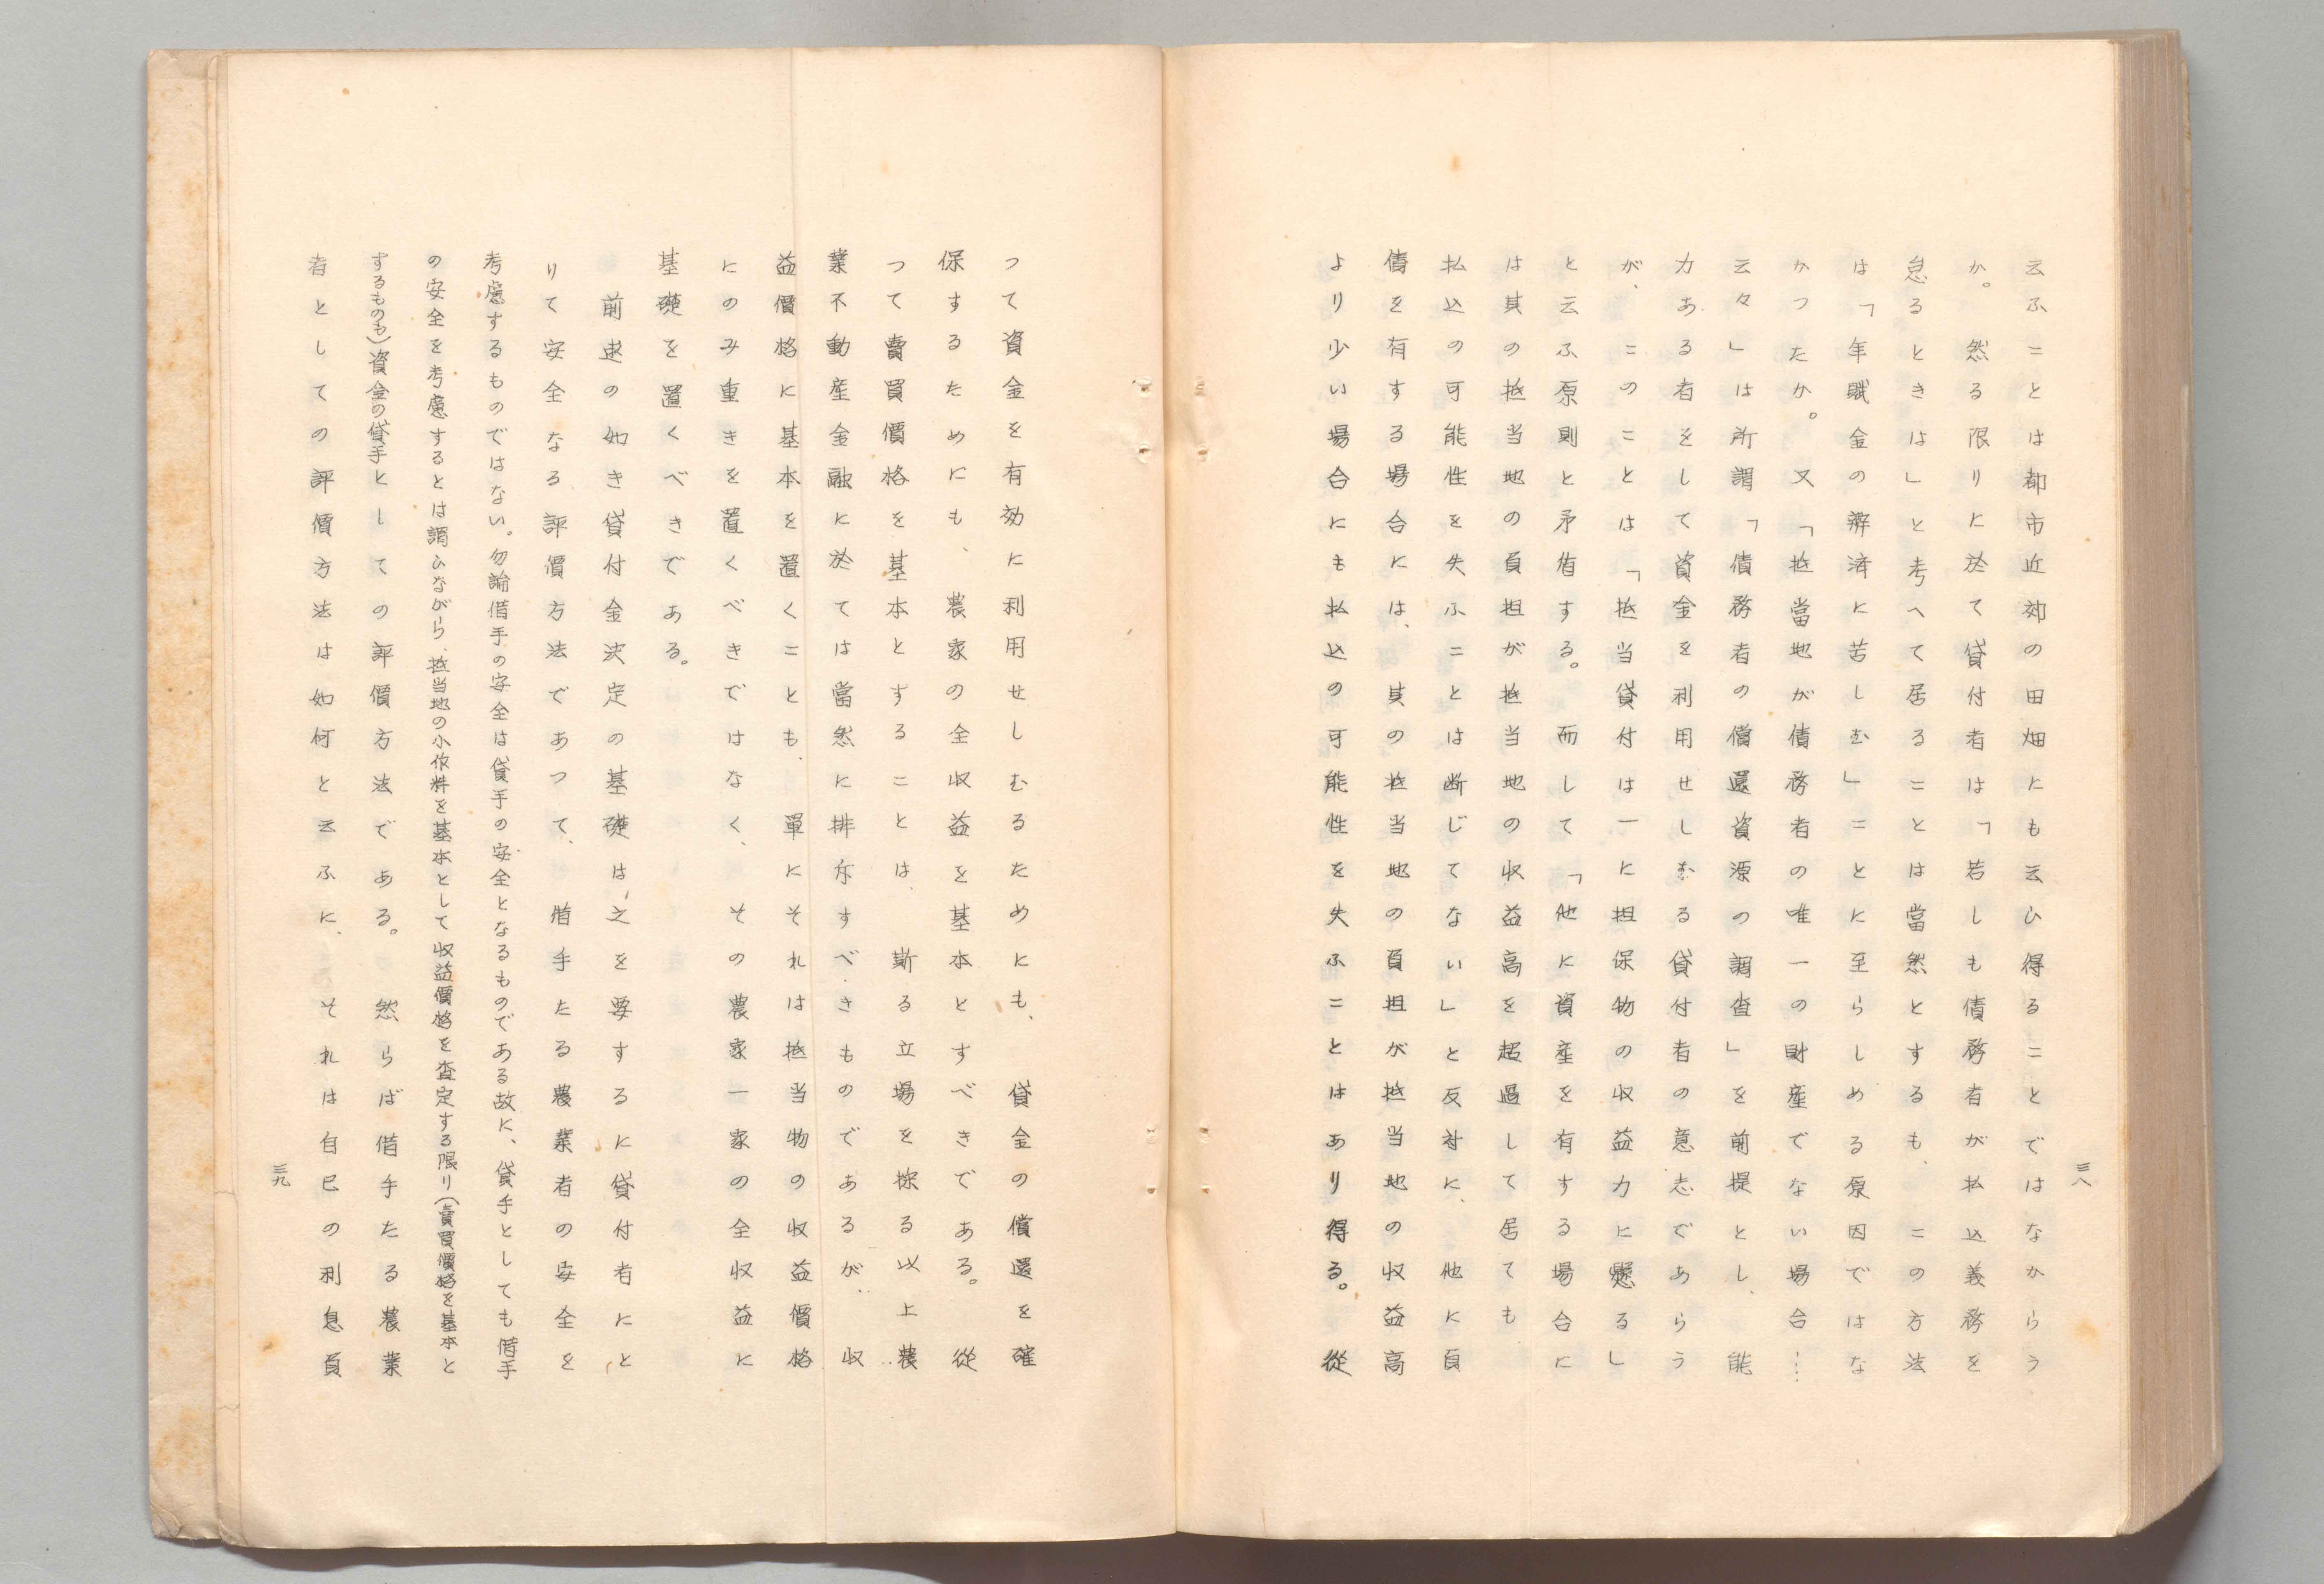 云ふことは都市近郊の田畑にも云ひ得ることではなからう
か。然る限りに於て貸付者は「若しも債務者が払込義務を
怠るときは」と考へて居ることは當然とするも、この方法
は「年賦金の辨済に苦しむ」ことに至らしめる原因ではな
かつたか。又「抵當地が債務者の唯一の財産でない場合…
云々」は所謂「債務者の償還資源の調査」を前提とし、能
力ある者をして資金を利用せしむる貸付者の意志であらう
が、このことは「抵当貸付は一に担保物の収益力に懸るし
と云ふ原則と矛盾する。而して「他に資産を有する場合に
は其の抵当地の負担が抵当地の収益高を超過して居ても
払込の可能性を失ふことは断じてない」と反対に、他に負
債を有する場合には、其の抵当地の負担が抵当地の収益高
より少い場合にも払込の可能性を失ふことはあり得る。従
三八
つて資金を有効に利用せしむるためにも、貸金の償還を確
保するためにも、農家の全収益を基本とすべきである。従
つて賣買價格を基本とすることは、斯る立場を採る以上農
業不動産金融に於ては當然に排斥すべきものであるが、収
益價格に基本を置くことも、單にそれは抵当物の収益價格
にのみ重きを置くべきではなく、その農家一家の全収益に
基礎を置くべきである。
前述の如き貸付金決定の基礎は、之を要するに貸付者にと
りて安全なる評價方法であつて、借手たる農業者の安全を
考慮するものではない。勿論借手の安全は貸手の安全となるものである故に、貸手としても借手
の安全を考慮するとは謂ひながら、抵当地の小作料を基本として収益價格を査定する限り(賣買價格を基本と
するものも)資金の貸手としての評價方法である。然らば借手たる農業
者としての評價方法は如何と云ふに、それは自己の利息負
三九